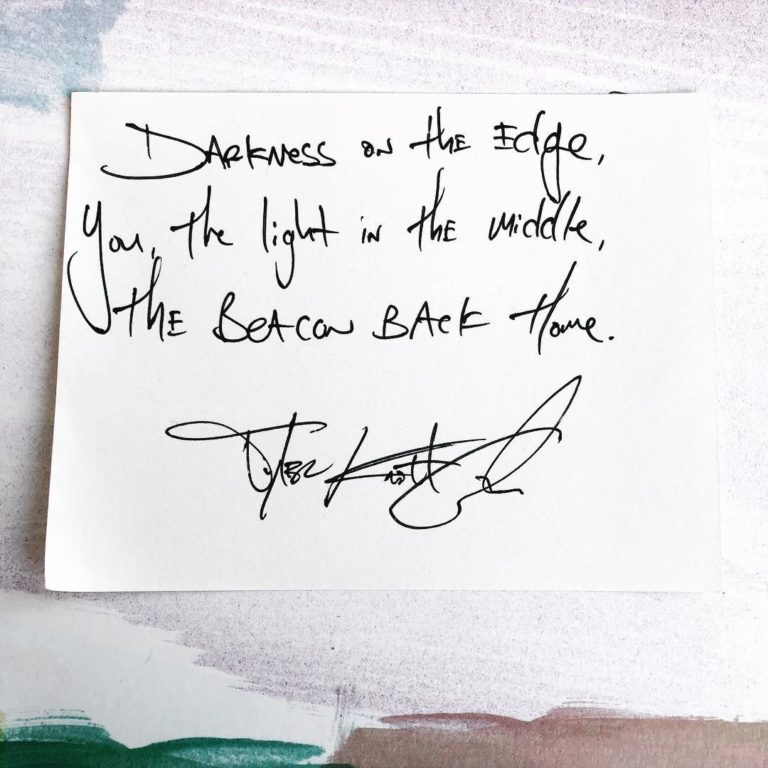 Darkness on the Edge,
You, the light in the middle,
the Beacon Back Home.
Tyler Knott